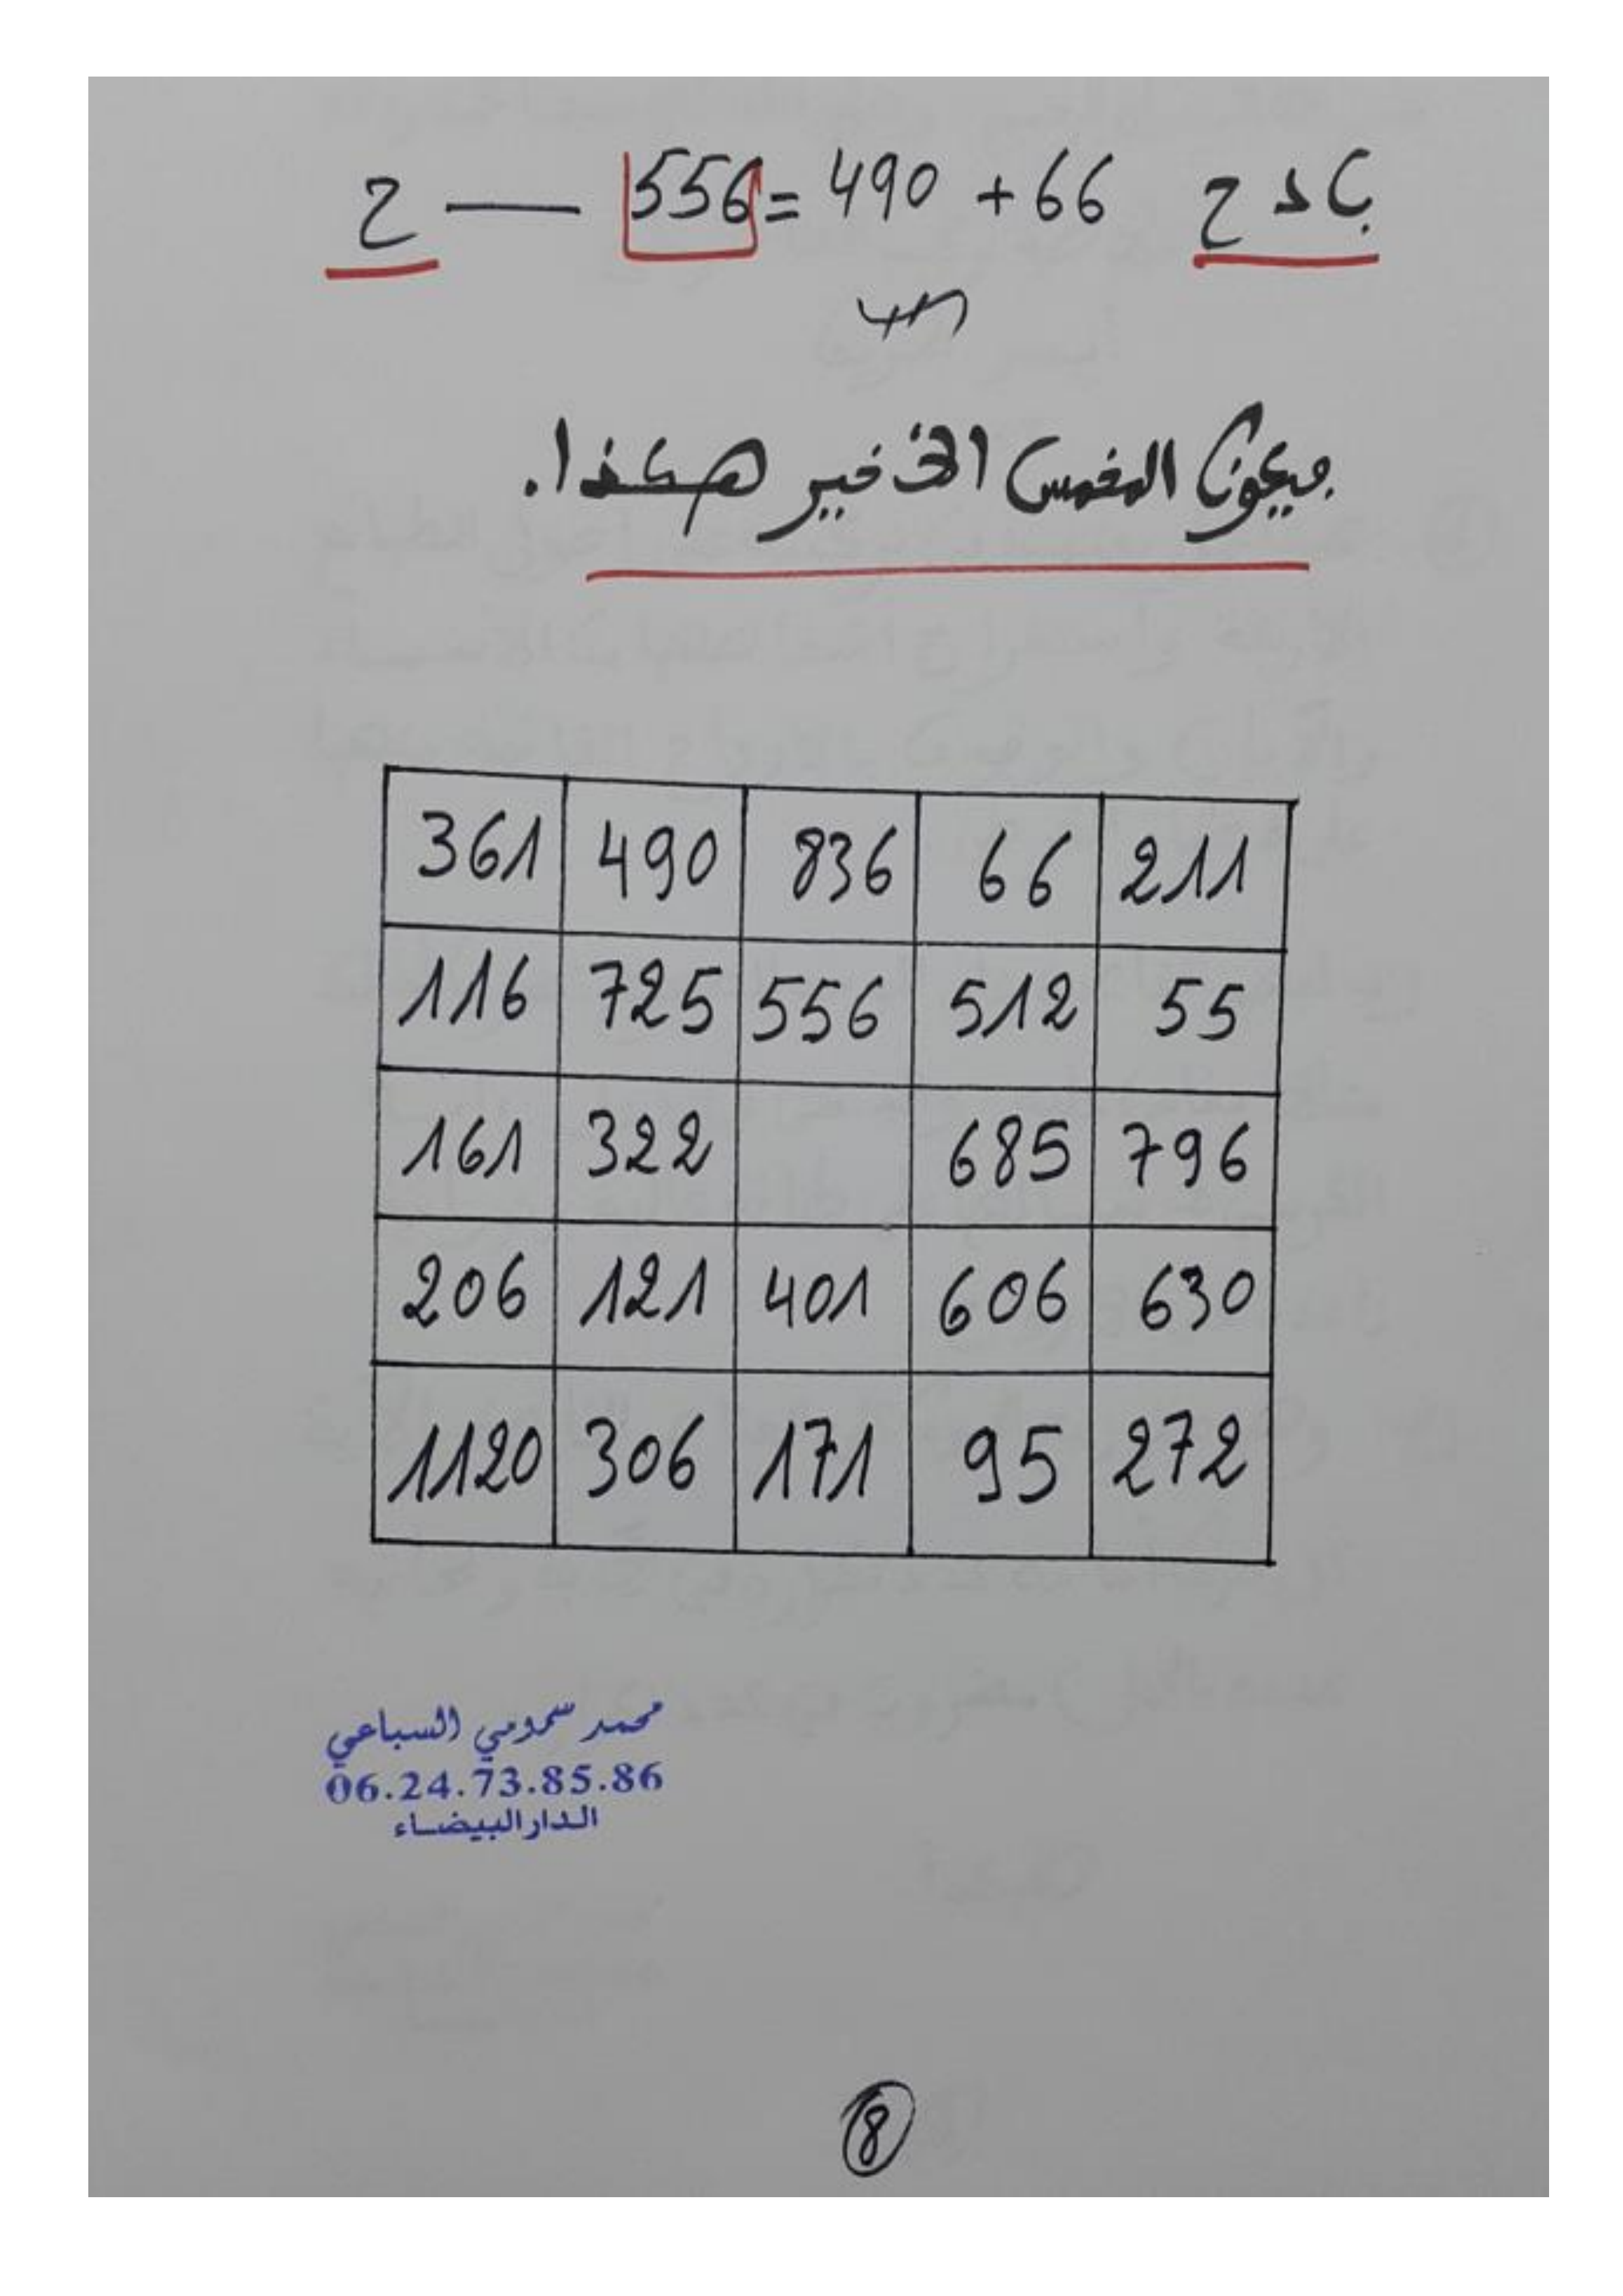 ب د ح 66 + 490 = 556 — ح
فيكون المخمس الأخير هكذا.
361 490 836 66 211
116 725 556 512 55
161 322 685 796
206 121 401 606 630
1120 306 171 95 272
محمد سمومي السباعي
06.24.73.85.86
الدار البيضاء
8